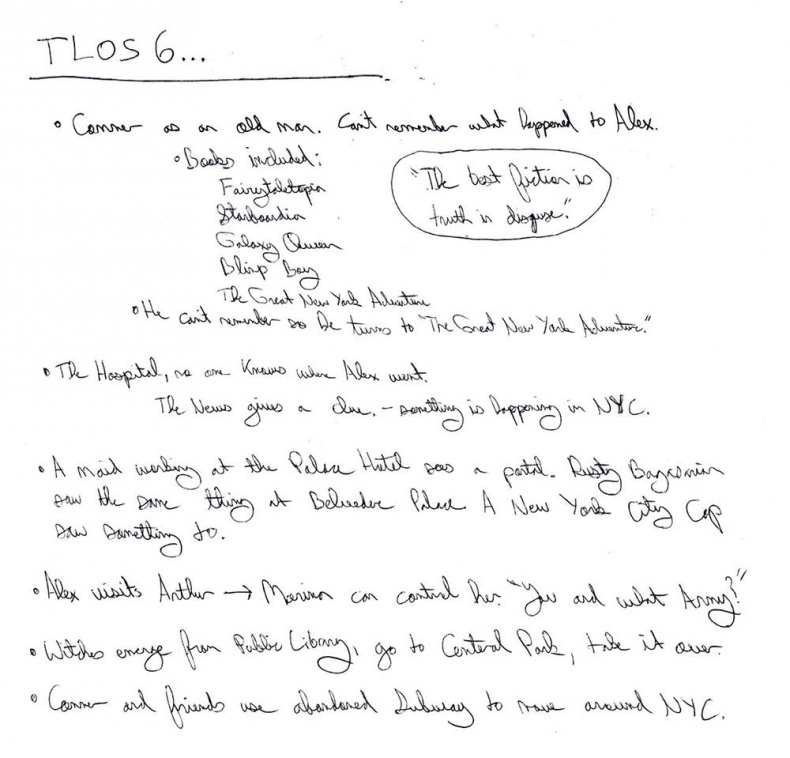 TLOS 6...
• Conner as an old man. Can't remember what happened to Alex.
• Books included:
Fairytaletopia
Starboardia
Galaxy Queen
Blimp Boy
The Great New York Adventure
"The best fiction is
truth in disguse."
• He can't remember so he turns to "The Great New York Adventure."
• The Hospital, no one knows where Alex went.
The News gives a clue. – something is happening in NYC.
• A maid working at the Palace Hotel saw a portal. Rusty
saw the same thing at Belvedere Palace A New York City Cop
saw something to.
• Alex visits Arthur → Morina can control her. "You and what Army?"
• Witches emerge from Public Library, go to Central Park, take it over.
• Conner and friends use abandoned subway to move around NYC.